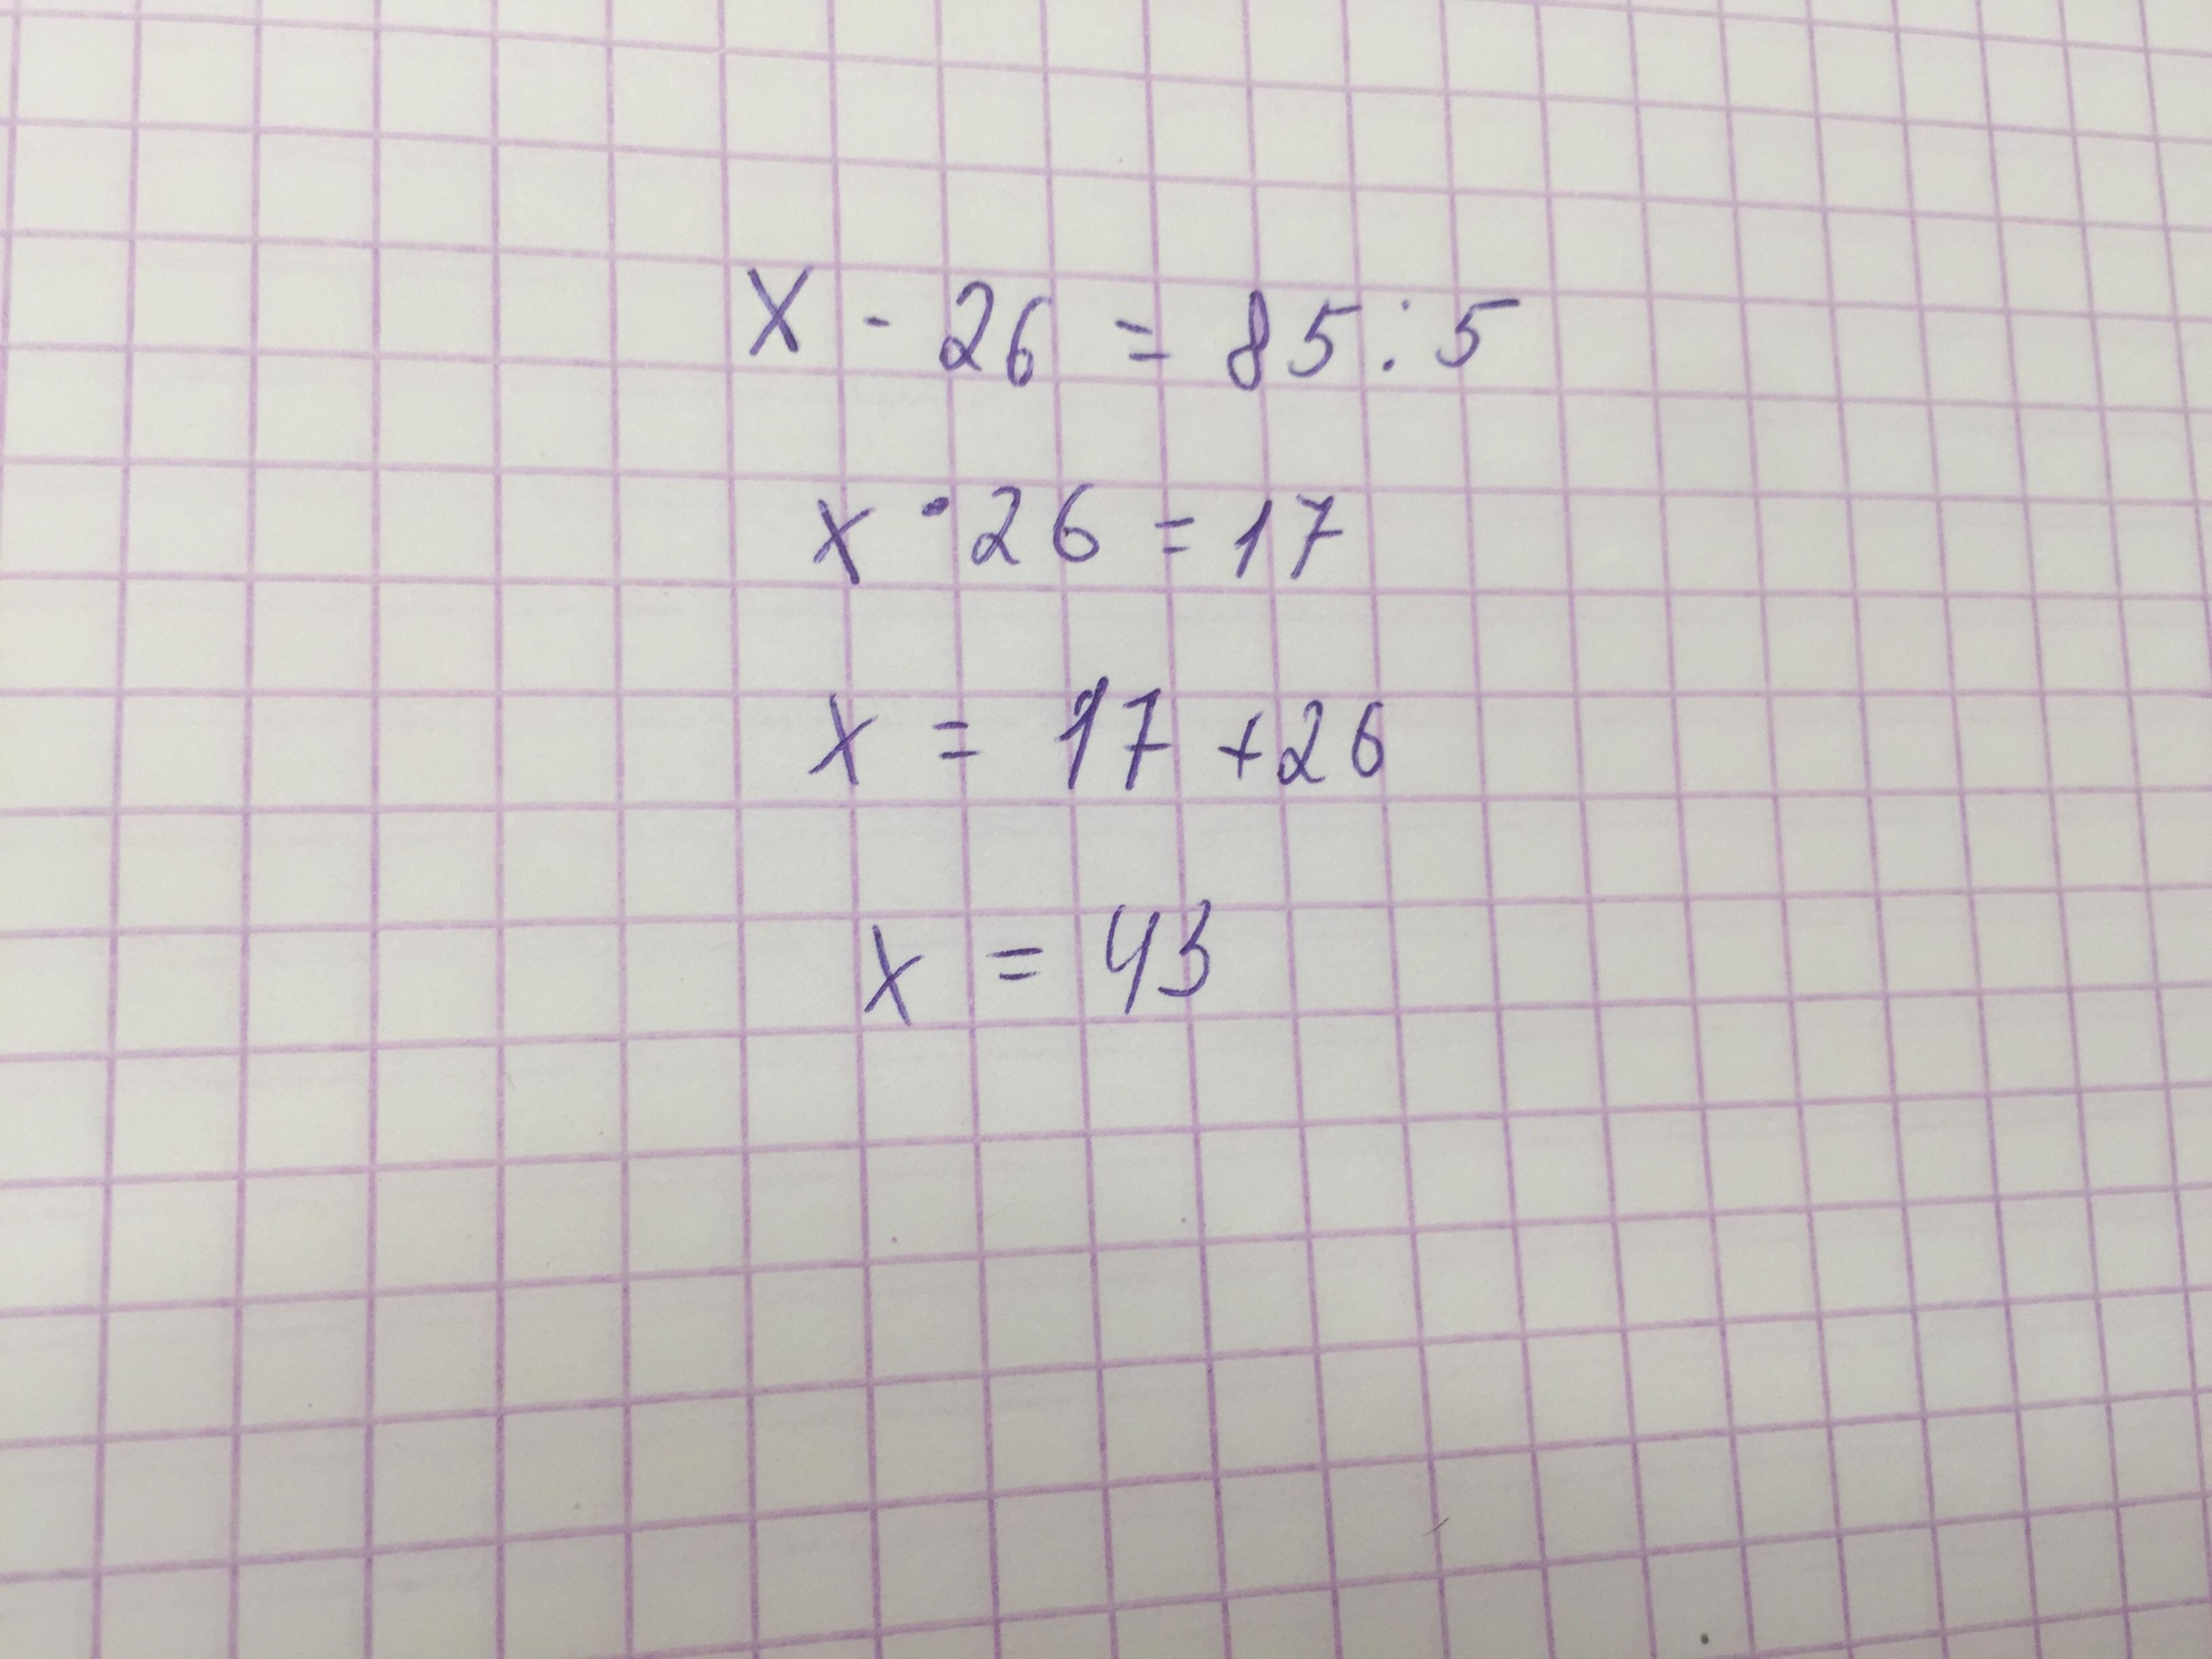 x - 26 = 85 : 5
x · 26 = 17
x = 17 + 26
x = 43